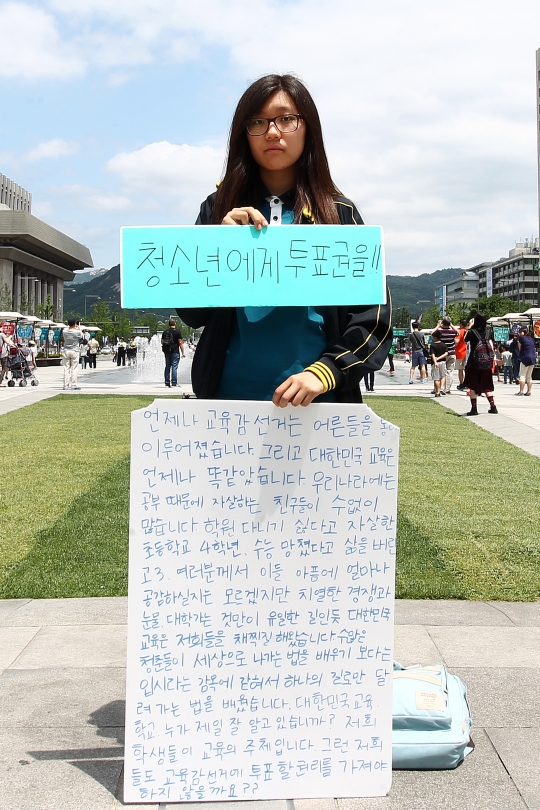 청소년에게 투표권을!!
언제나 교육감 선거는 어른들을 통
이루어졌습니다. 그리고 대한민국 교육은
언제나 똑같았습니다 우리나라에는
공부 때문에 자살하는 친구들이 수없이
많습니다 학원 다니기 싫다고 자살한
초등학교 4학년. 수능 망쳤다고 삶을 버린
고3. 여러분께서 이들 아픔에 얼마나
공감하실지는 모르겠지만 치열한 경쟁과
눈물 대학가는 것만이 유일한 길인듯 대한민국
교육은 저희들을 채찍질 해왔습니다 수많은
청춘들이 세상으로 나가는 법을 배우기 보다는
입시라는 감옥에 갇혀서 하나의 길로만 달
려가는 법을 배웠습니다. 대한민국 교육.
학교. 누가 제일 잘 알고 있습니까? 저희
학생들이 교육의 주체입니다 그런 저희
들도 교육감선거에 투표할 권리를 가져야
하지 않을까요??